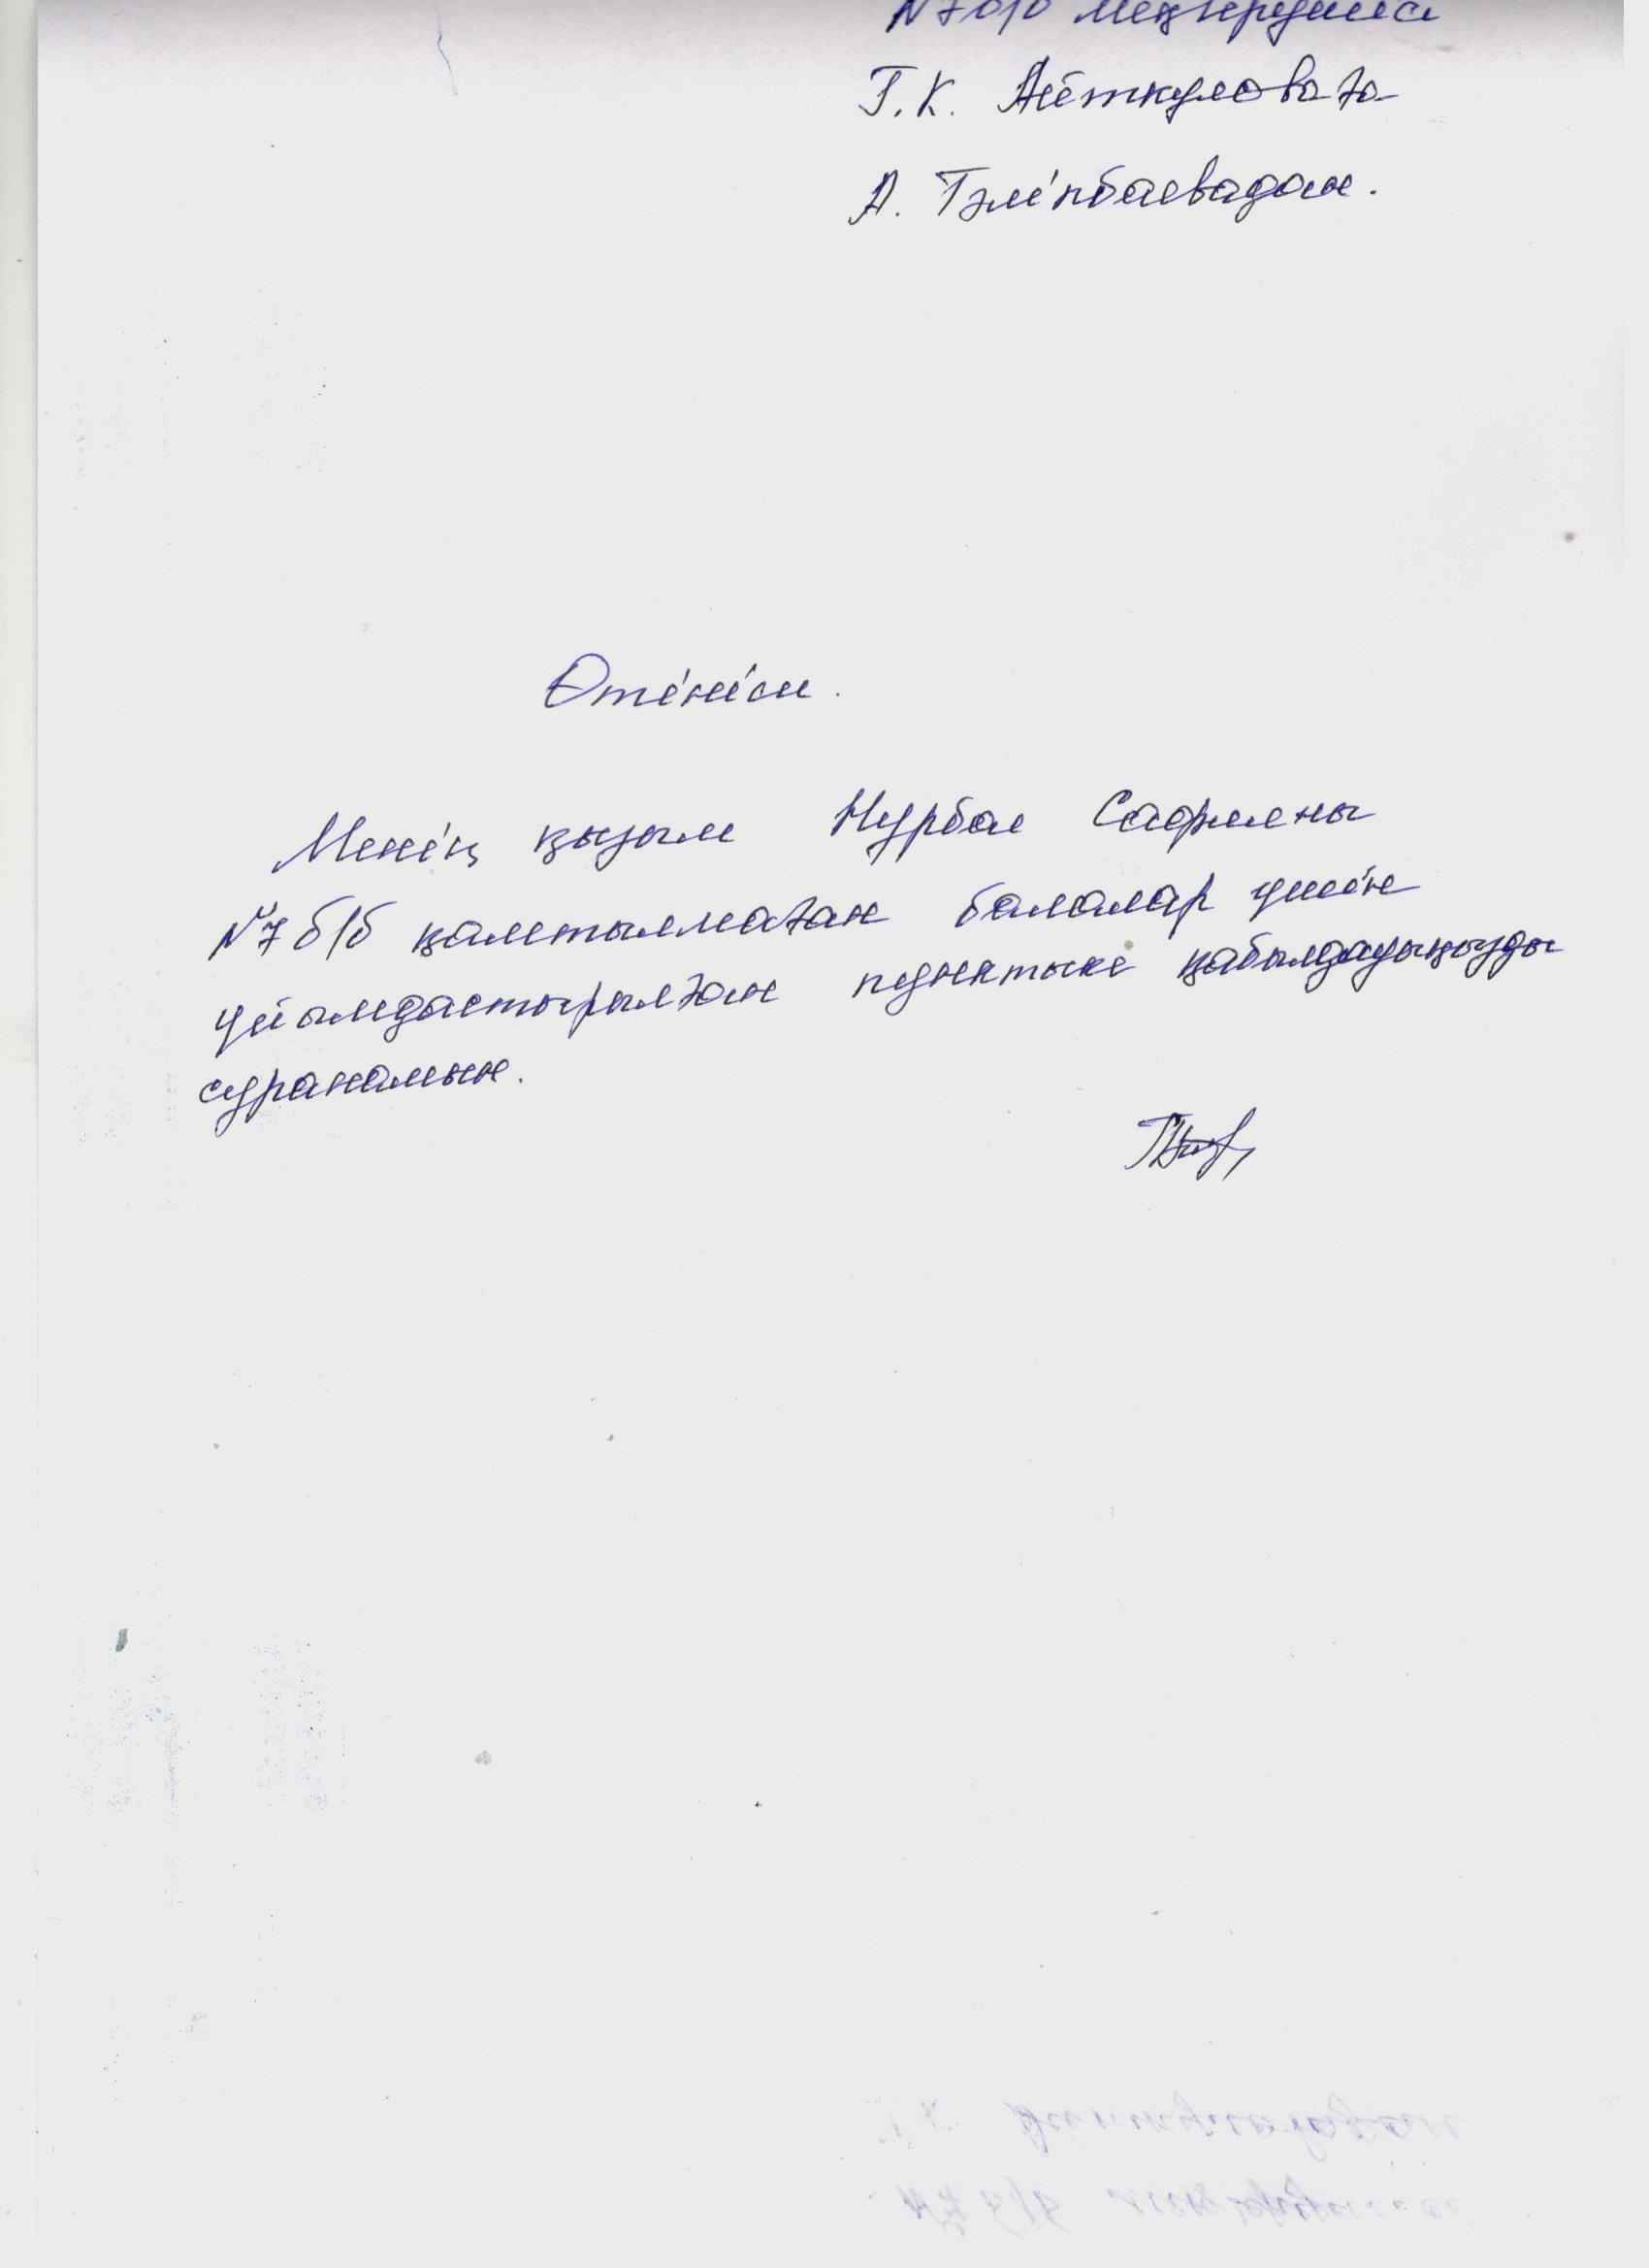 №7 б/б меңгерушісі
Г.К. Айткуловаға
А. Тәліпбаевадан.
Өтініш.
Менің қызым Нұрбал Сафияны
№7 б/б қамтылмаған балалар үшін
ұйымдастырылған пунктке қабылдауыңызды
сұранамын.